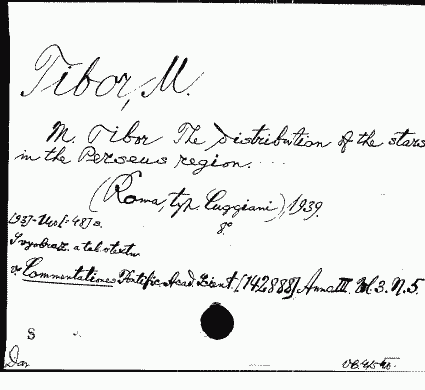 Tibor, M.
M. Tibor The distribution of the stars
in the Perseus region. ...
(Roma, typ. Cuggiani), 1939.
8°
[93]-140 [-48] s.
S vyobraz. a tab. v textu
v: Commentationes Pontific. Acad. Scient. [142888] Anno III. Vol. 3. N. 5.
S
Dar